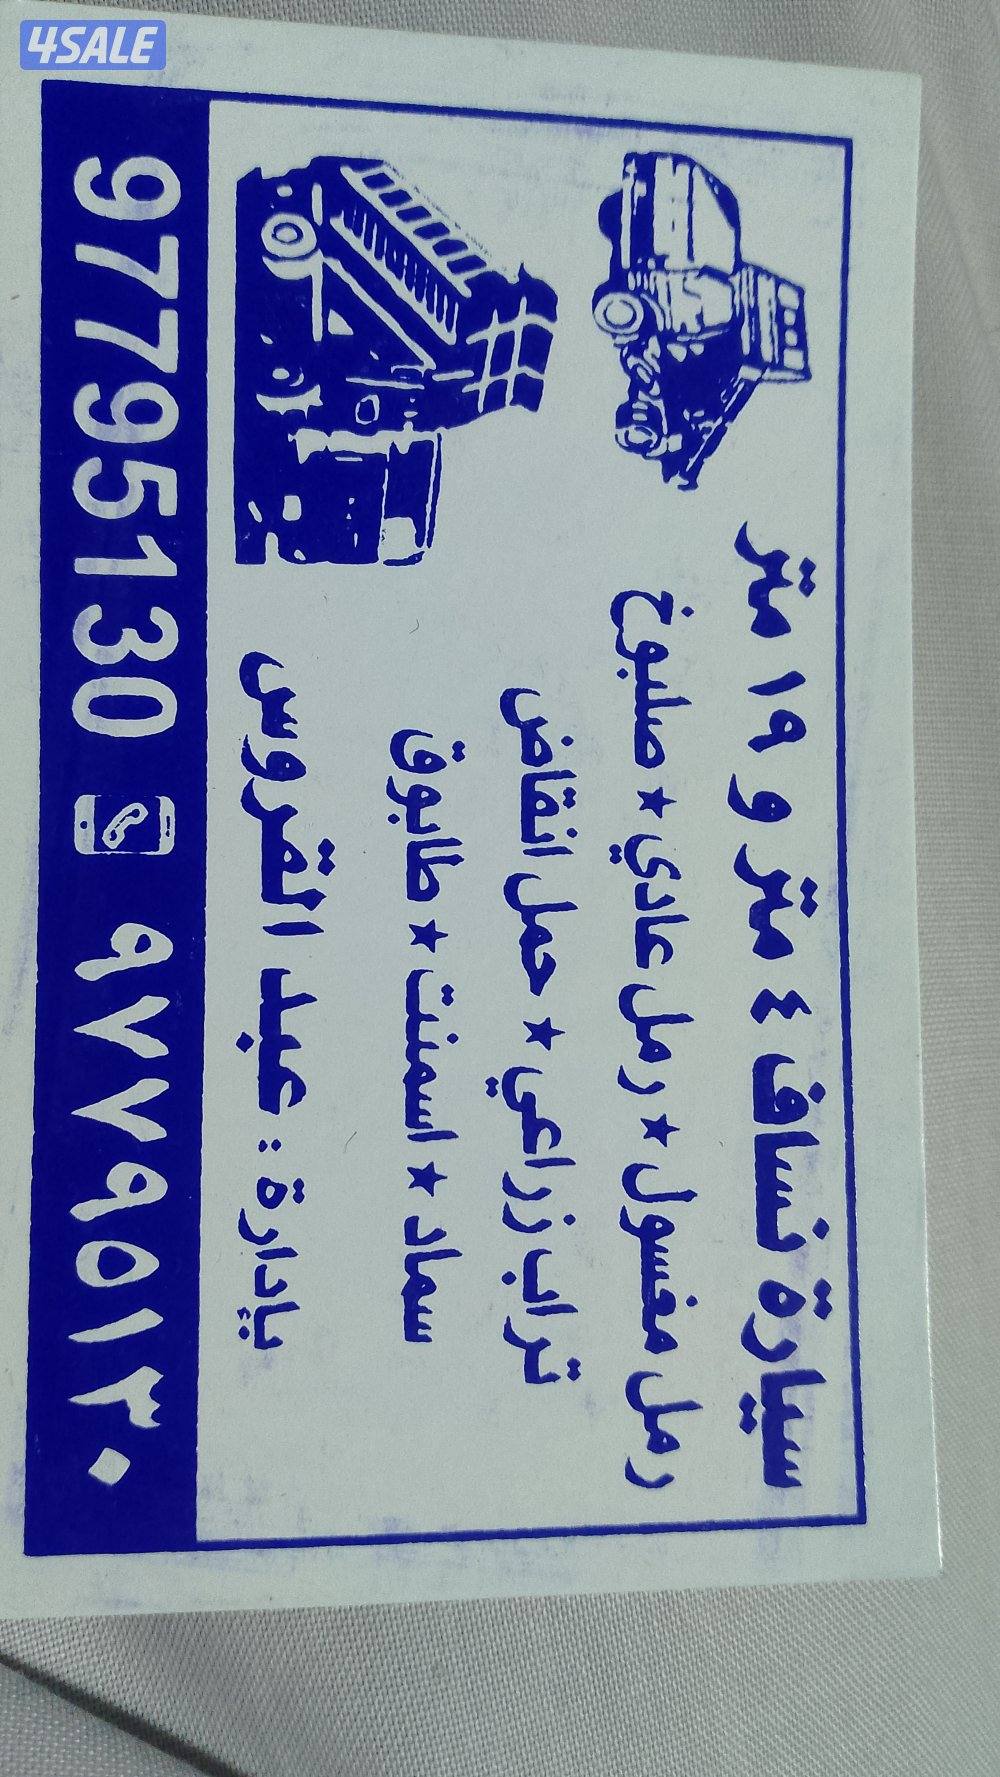 4SALE
سيارة نساف ٤ متر و ١٩ متر
رمل مغسول ★ رمل عادي ★ صلبوخ
تراب زراعي ★ حمل انقاض
سماد ★ اسمنت ★ طابوق
بإدارة : عبد القروس
97795130 ٩٧٧٩٥١٣٠